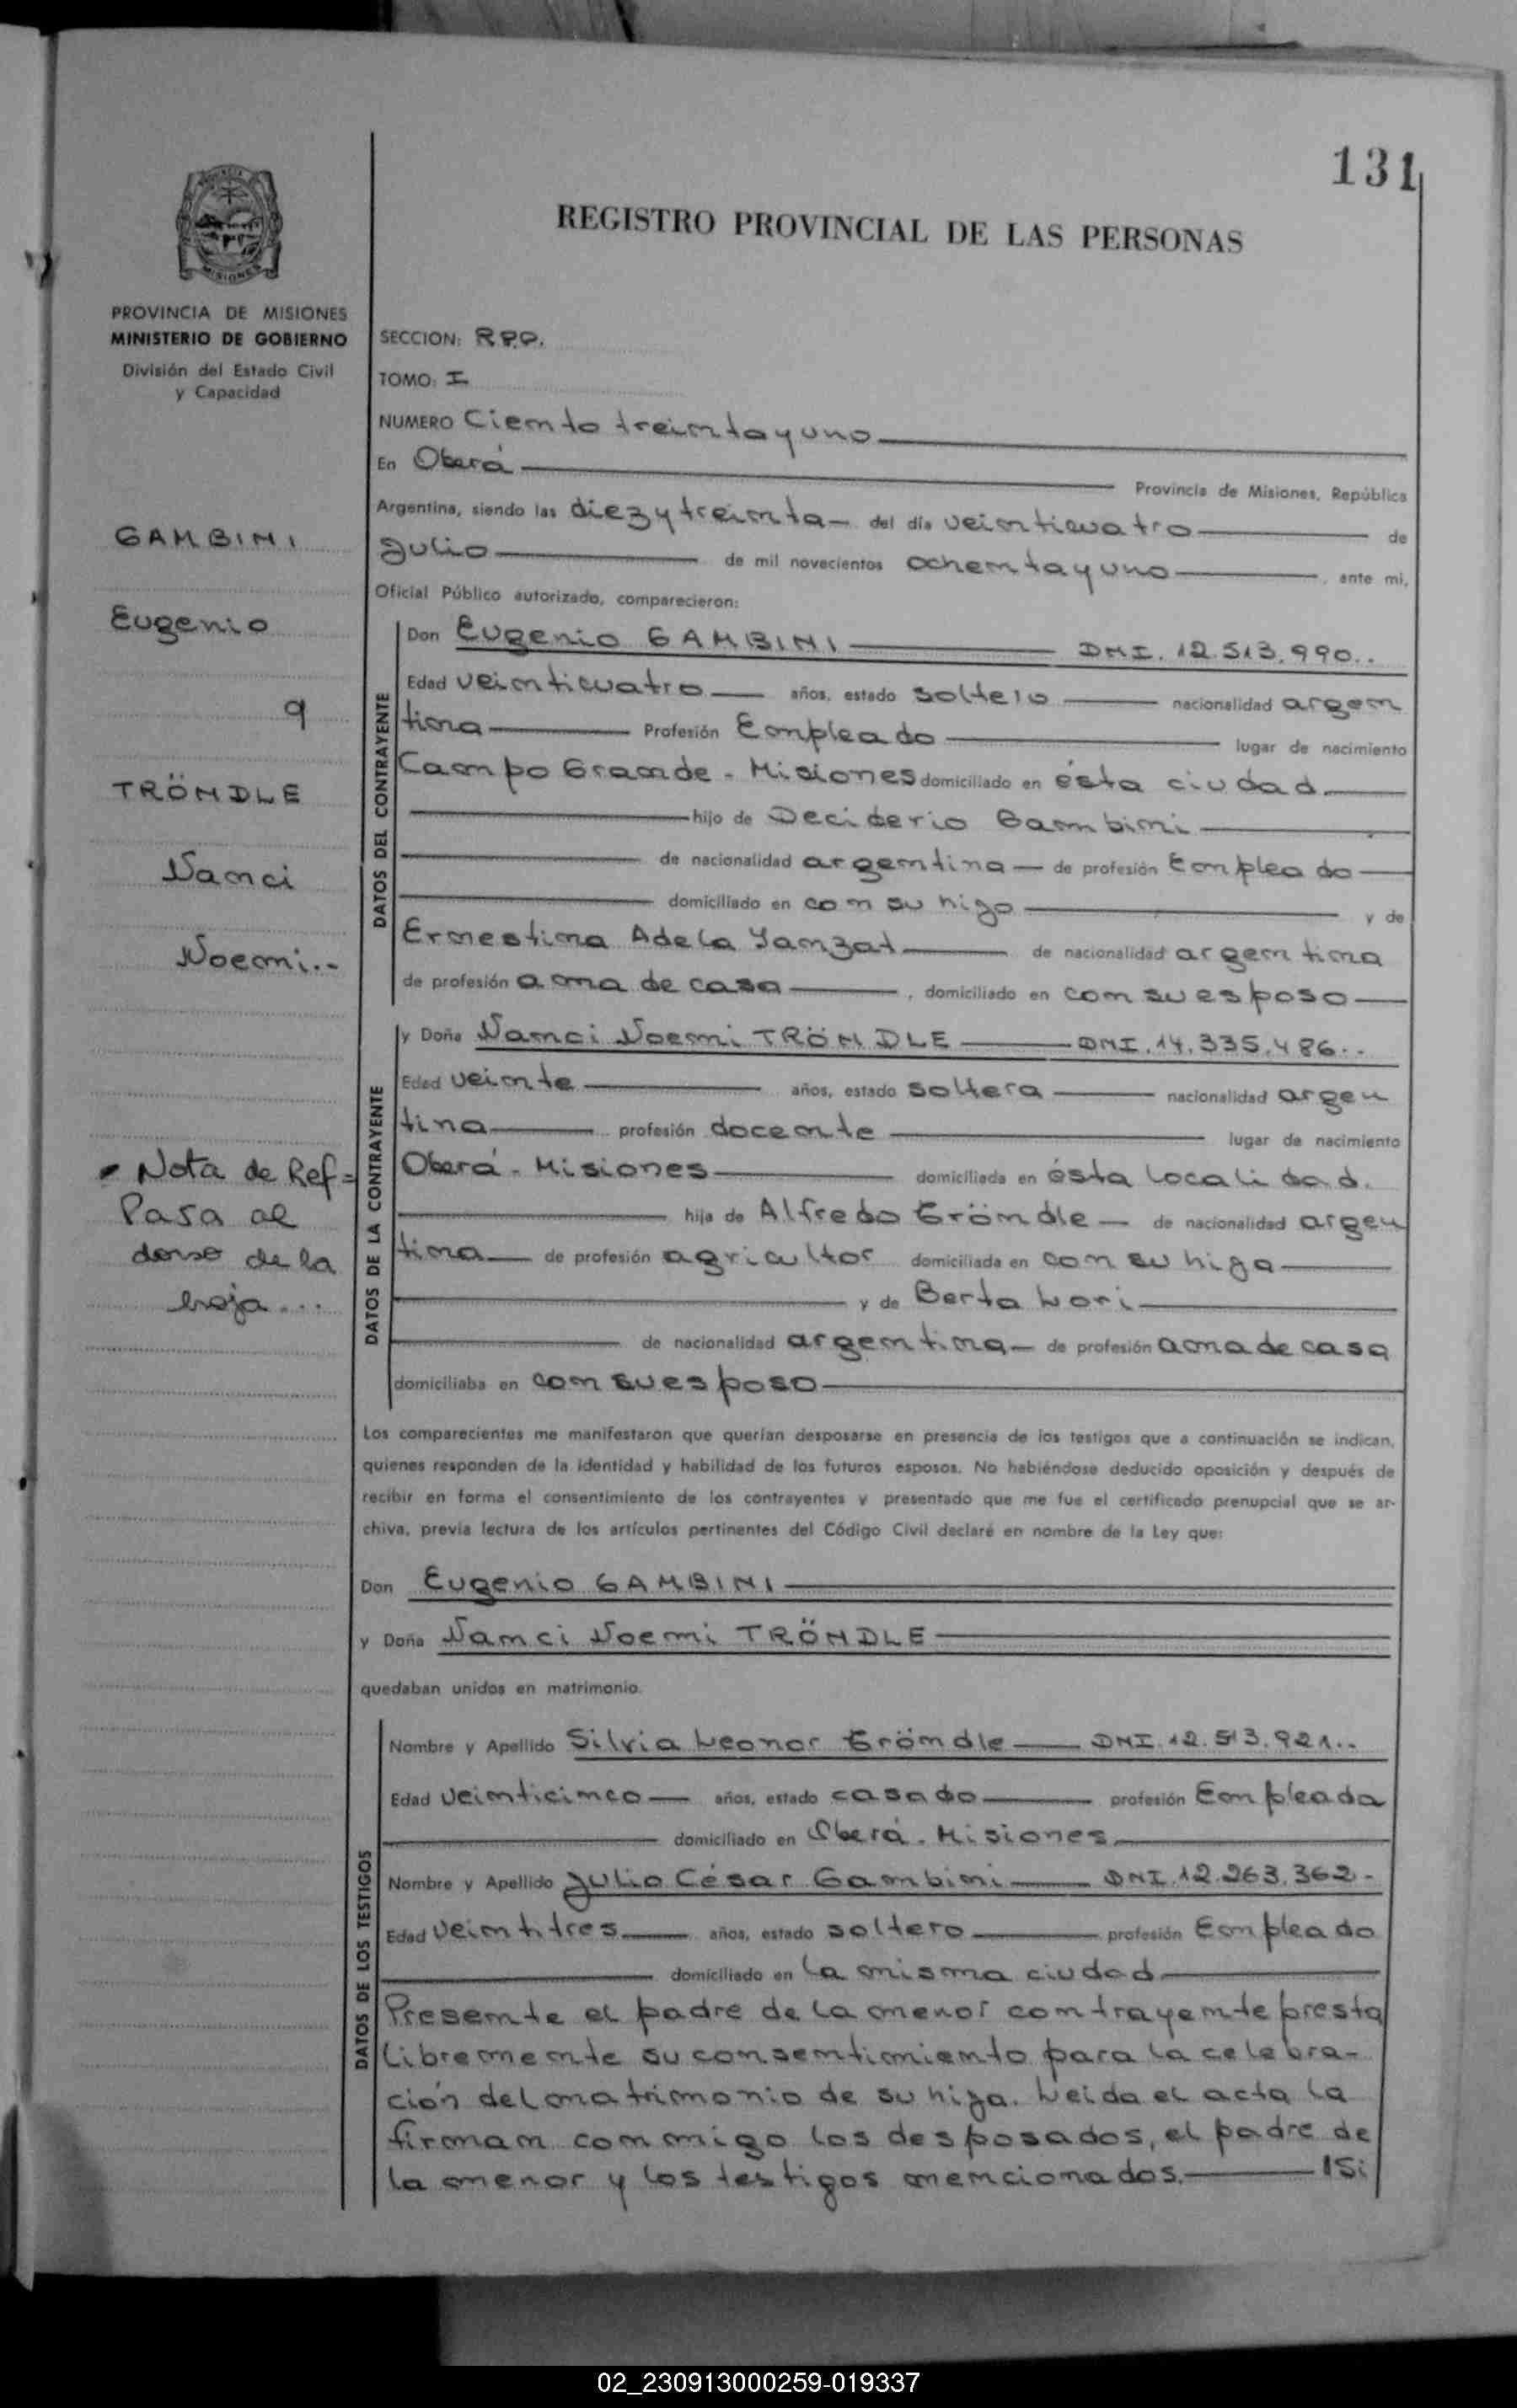 131
REGISTRO PROVINCIAL DE LAS PERSONAS
MISIONES
PROVINCIA DE MISIONES
MINISTERIO DE GOBIERNO
División del Estado Civil
y Capacidad
GAMBINI
Eugenio
TRÖNDLE
Nanci
Noemi.-
Nota de Ref=
Pasa al
dorso de la
hoja...
SECCION: R.P.P.
TOMO: I
NUMERO Ciento treinta y uno
En Oberá Provincia de Misiones, República
Argentina, siendo las diez y treinta - del día veinticuatro de
Julio de mil novecientos ochenta y uno, ante mi,
Oficial Público autorizado, comparecieron:
DATOS DEL CONTRAYENTE
Don Eugenio GAMBINI DNI. 12.513.990..
Edad veinticuatro años, estado soltero nacionalidad argen
tina Profesión Empleado lugar de nacimiento
Campo Grande - Misiones domiciliado en ésta ciudad
hijo de Deciderio Gambini
de nacionalidad argentina de profesión Empleado
domiciliado en con su hijo y de
Ernestina Adela Yanzat de nacionalidad argentina
de profesión ama de casa, domiciliado en con su esposo
DATOS DE LA CONTRAYENTE
y Doña Nanci Noemi TRÖNDLE DNI. 14.335.486..
Edad veinte años, estado soltera nacionalidad argen
tina profesión docente lugar de nacimiento
Oberá - Misiones domiciliada en ésta localidad.
hija de Alfredo Tröndle de nacionalidad argen
tina de profesión agricultor domiciliada en con su hija
y de Berta Lori
de nacionalidad argentina de profesión ama de casa
domiciliaba en con su esposo
Los comparecientes me manifestaron que querían desposarse en presencia de los testigos que a continuación se indican,
quienes responden de la identidad y habilidad de los futuros esposos. No habiéndose deducido oposición y después de
recibir en forma el consentimiento de los contrayentes y presentado que me fue el certificado prenupcial que se ar-
chiva, previa lectura de los artículos pertinentes del Código Civil declaré en nombre de la Ley que:
Don Eugenio GAMBINI
y Doña Nanci Noemi TRÖNDLE
quedaban unidos en matrimonio.
DATOS DE LOS TESTIGOS
Nombre y Apellido Silvia Leonor Tröndle DNI. 12.513.921..
Edad veinticinco años, estado casado profesión Empleada
domiciliado en Oberá - Misiones
Nombre y Apellido Julio César Gambini DNI. 12.263.362-
Edad veintitres años, estado soltero profesión Empleado
domiciliado en la misma ciudad
Presente el padre de la menor contrayente presta
libremente su consentimiento para la celebra-
ción del matrimonio de su hija. Leida el acta la
firman conmigo los desposados, el padre de
la menor y los testigos mencionados.
02_230913000259-019337